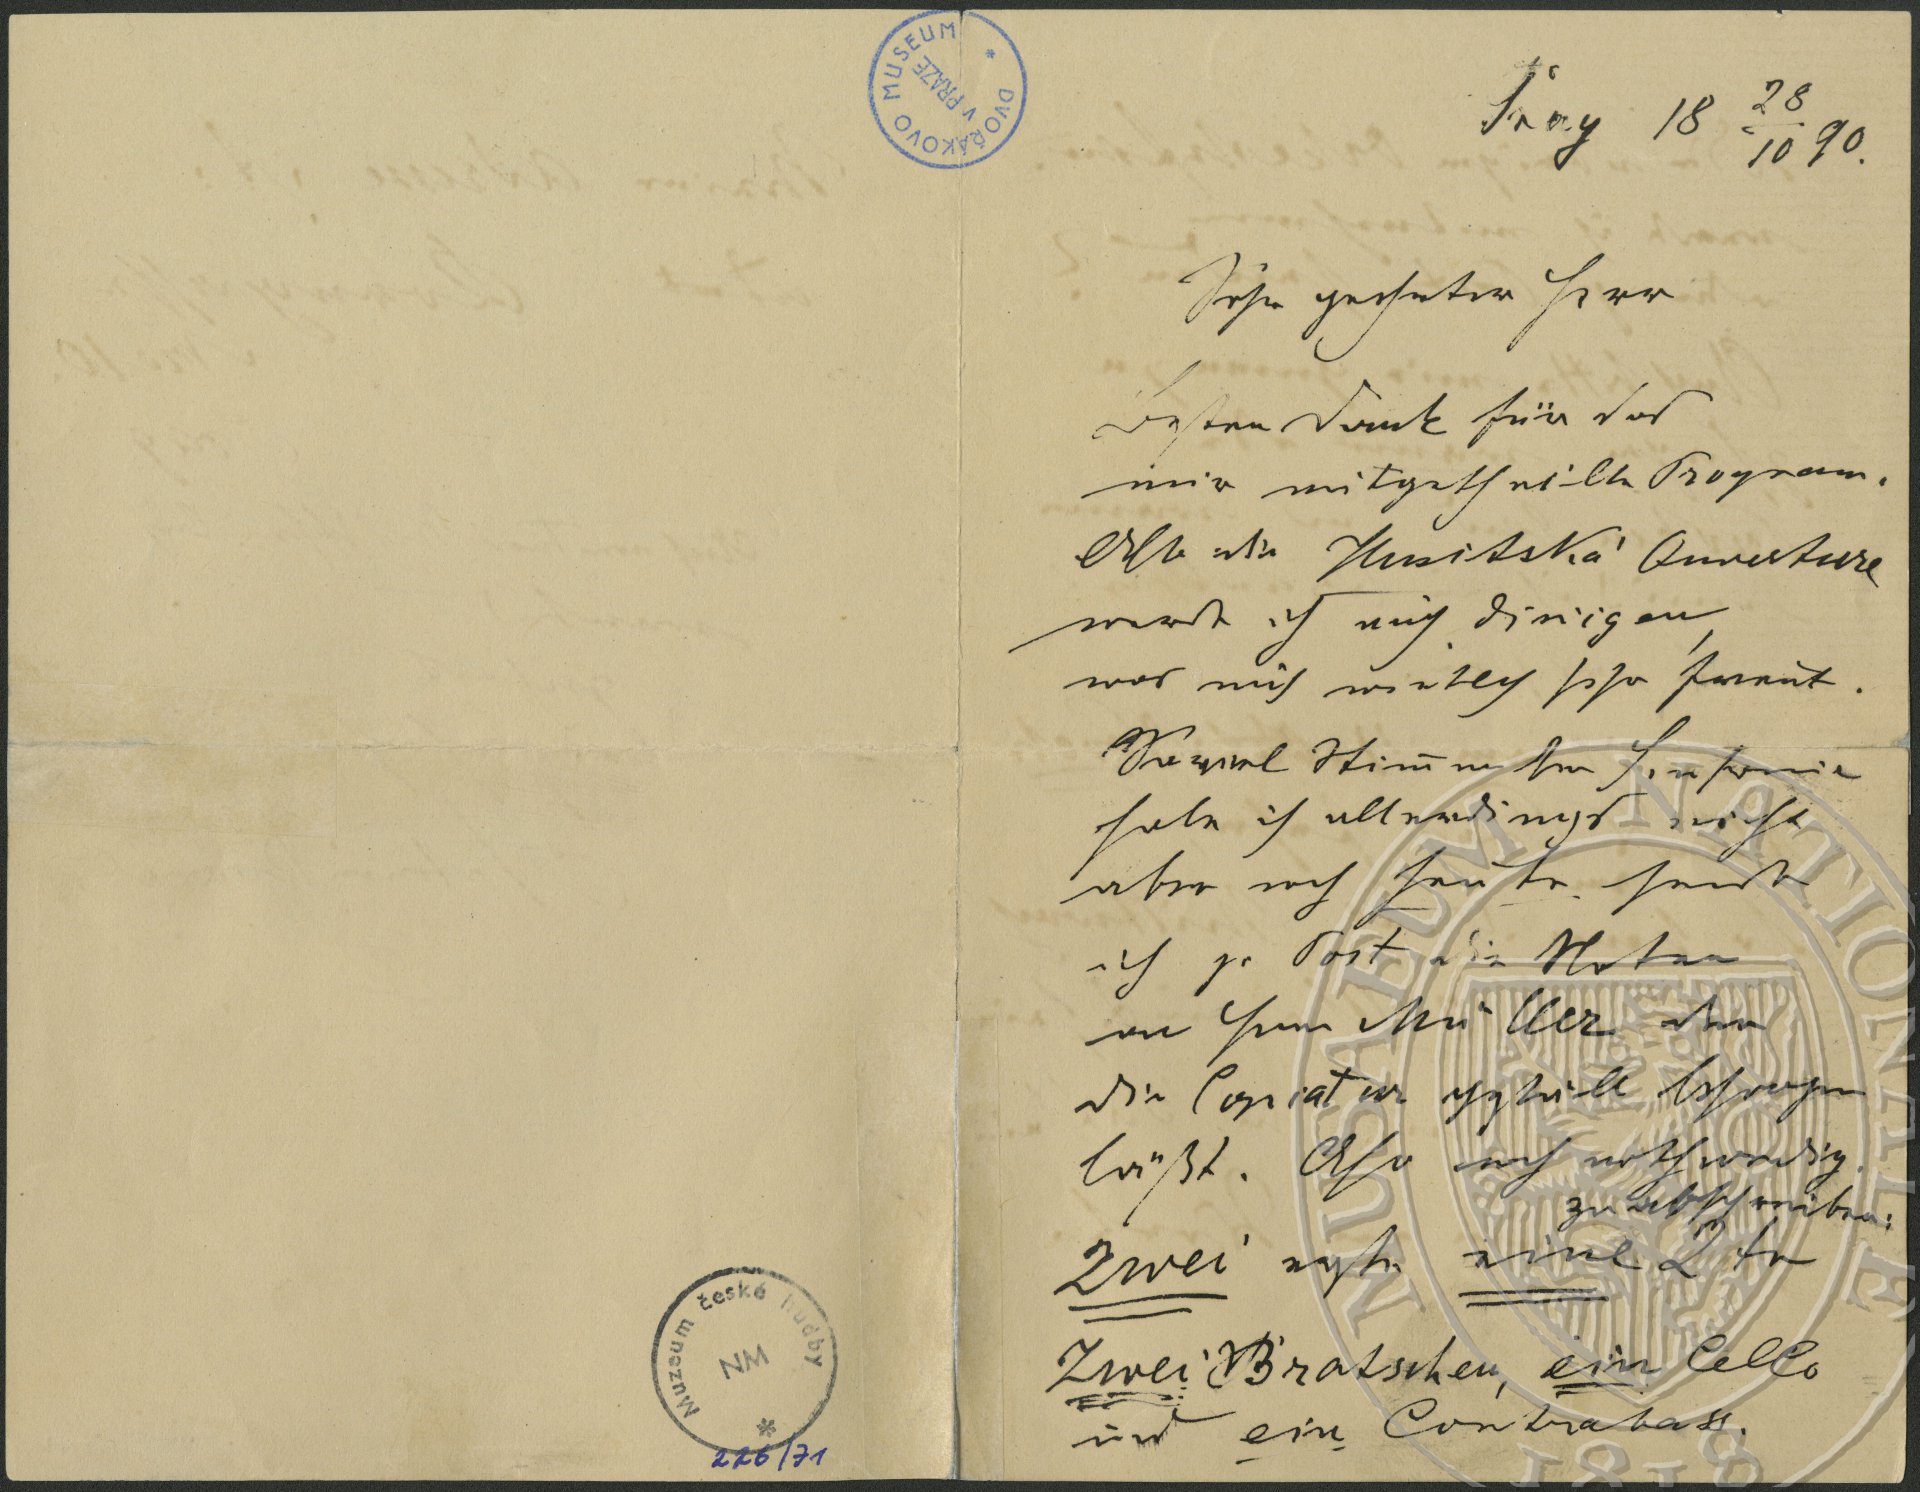 DVOŘÁKOVO MUSEUM
V PRAZE
Prag 18 28/10 90.
Sehr geehrter Herr
Besten Dank für das
mir mitgetheilte Program.
Also die Husitská Ouverture
werde ich auch dirigen,
was mich wirklich sehr freut.
Soviel Stimmen der Sinfonie
habe ich allerdings nicht
aber noch heute sende
ich p. Post die Noten
an Herrn Müller der
die Copiatur besorgen
läßt. Also noch nothwendig
zu abschreiben:
Zwei erste eine 2te
Zwei Bratschen, ein Cello
und ein Contrabass.
Muzeum české hudby
NM
226/71
MUSAEUM NATIONALE
1818